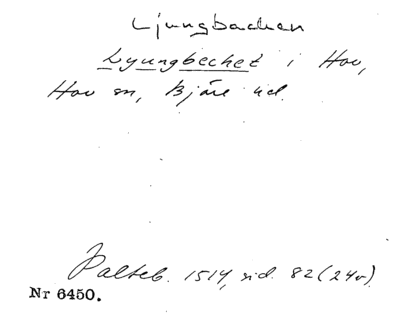 Ljungbacken
Lyungbechet i Hov,
Hov sn, Bjäre hd.
Palteb. 1514, sid. 82 (24v)
Nr 6450.